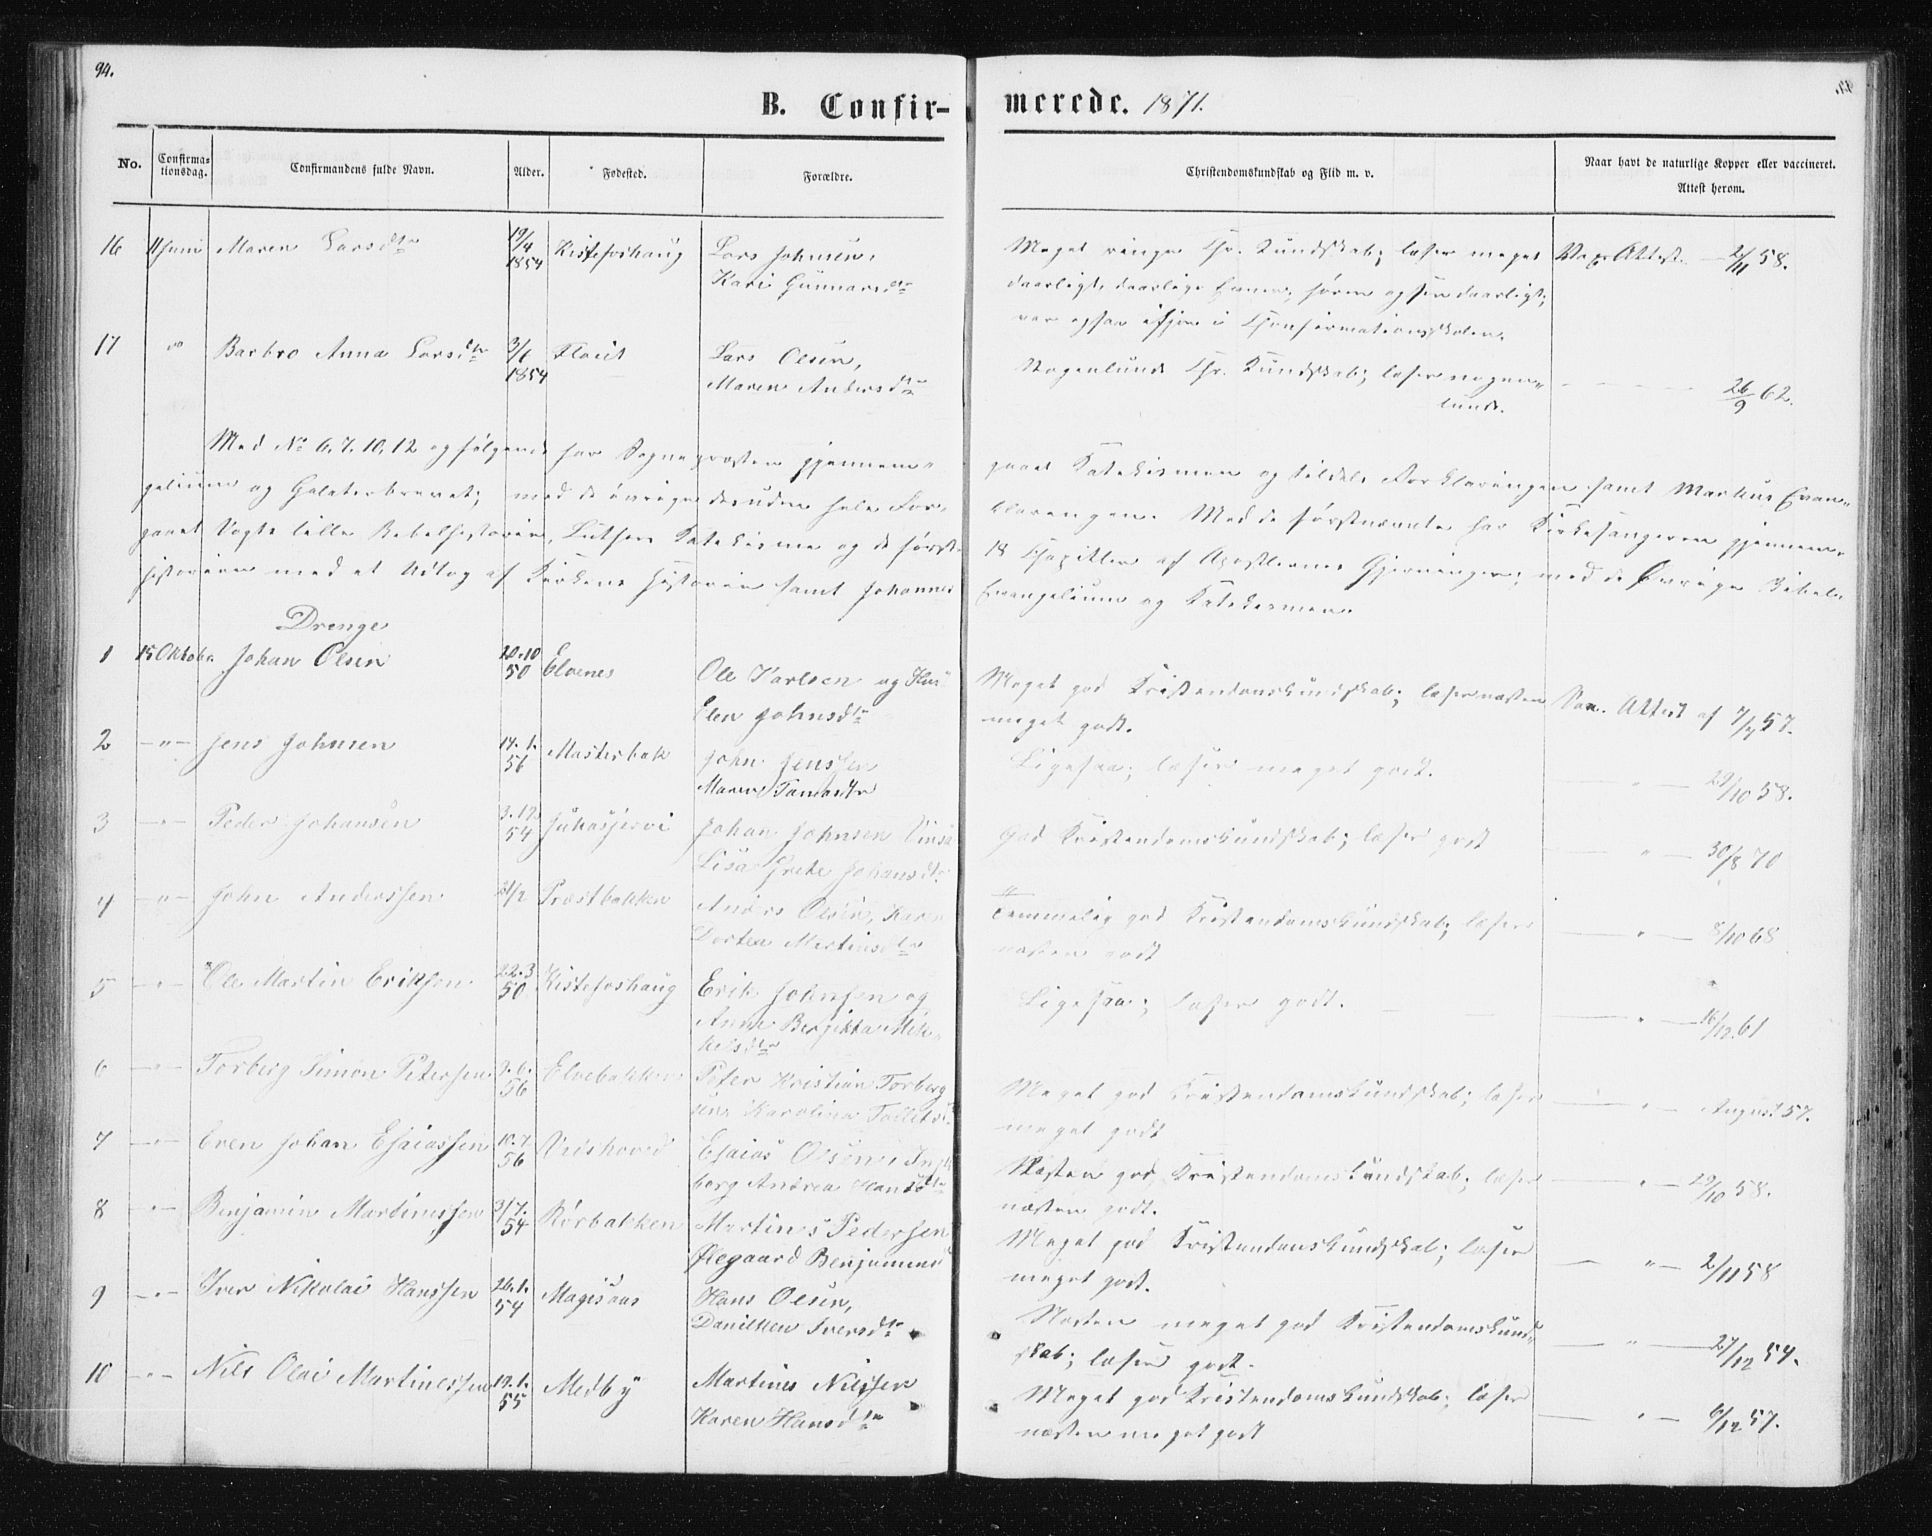 94.
B. Confir-
merede. 1871.
No.
Confirma-
tionsdag.
Confirmandens fulde Navn.
Alder.
Fødested.
Forældre.
Christendomskundskab og Flid m. v.
Naar havt de naturlige Kopper eller vaccineret.
Attest herom.
16 11 Juni Maren Larsdtr 19/4 1854 Kistefoshaug Lars Johnsen,
Kari Gunnarsdtr
Meget ringe Chr. Kundskab; læser meget
daarligt, daarlige Evner, hører og ser daarligt;
var ogsaa ifjor i Confirmationsskolen.
Attest 2/11 58.
17 " Barbro Anna Larsdtr 3/6 1854 Flaat Lars Olsen,
Maren Andersdtr
Nogenlunde Chr. Kundskab; læser nogen-
lunde.
26/9 62.
Med No 6, 7, 10, 12 og følgende har Sognepresten gjennem-
gaaet Katekismen og tildels Forklaringen samt Markus Evan-
gelium og Galaterbrevet; med de øvrige desuden hele For-
klaringen. Med de førstnævnte har Kirkesangeren gjennem-
gaaet Vogts lille Bibelhistorie, Luthers Katekisme og de første
18 Kapitler af Apostlernes Gjerninger; med de Øvrige Bibel-
historien med et Udtog af Kirkens Historie samt Johannes
Evangelium og Katekismen.
Drenge
1 15 Oktobr. Johan Olsen 20.10 50 Elvenes Ole Karlsen og
Elen Johnsdtr
Meget god Kristendomskundskab; læser næsten
meget godt.
Attest af 7/7 57.
2 -"- Jens Johnsen 14.1. 56 Masterbak John Jenssen
Maren
Ligesaa; læser meget godt.
29/10 58.
3 -"- Peder Johansen 3.12 54 Jukasjervi Johan Johnsen
Lisa Grete Johansdtr
God Kristendomskundskab; læser godt
30/8 70
4 -"- John Anderssen Præstbakken Anders Olsen, Karen
Dortea Martinsdtr
Temmelig god Kristendomskundskab; læser
næsten godt
8/10 68
5 -"- Ole Martin Eriksen 22.3 50 Kistefoshaug Erik Johnsen og
Anne Bergitta Mik-
kelsdtr
Ligesaa; læser godt.
16/12 61
6 -"- Torberg Simon Petersen 56 Elvebakken Peter Kristian Torberg
sen, Karolina
Meget god Kristendomskundskab; læser
meget godt
August 57.
7 -"- Even Johan Esaiassen 10.7 56 Esaias Olsen, Inge
borg Andrea Hansdtr
Næsten god Kristendomskundskab; læser
næsten godt.
29/10 58.
8 -"- Benjamin Martinussen 3/7. 54 Rørbakken Martinus Pedersen
Ølegaard Benjaminsd
Meget god Kristendomskundskab; læser
meget godt.
2/11 58
9 -"- Iver Nikolai Hanssen 26.1. 54 Magisaas Hans Olsen,
Danilken Iversdtr
Næsten meget god Kristendomskund-
skab; læser godt.
27/12 54.
10 -"- Nils Olai Martinussen 19.1. 55 Medby Martines Nilssen
Karen Hansdtr
Meget god Kristendomskundskab; læser
næsten meget godt
6/12 57.